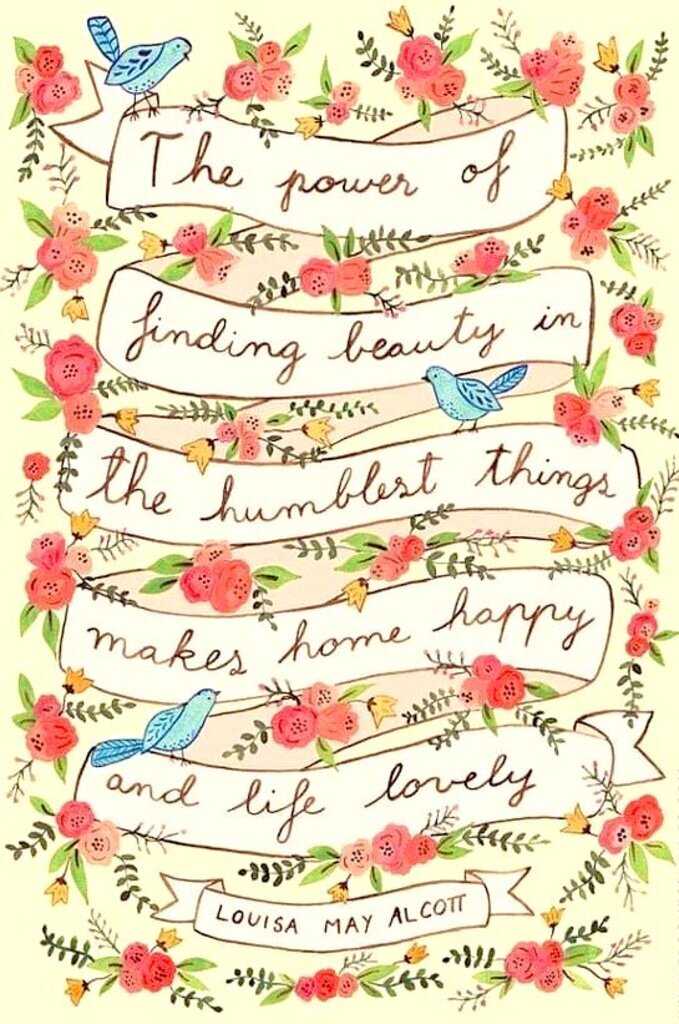 The power of
finding beauty in
the humblest things
makes home happy
and life lovely
LOUISA MAY ALCOTT